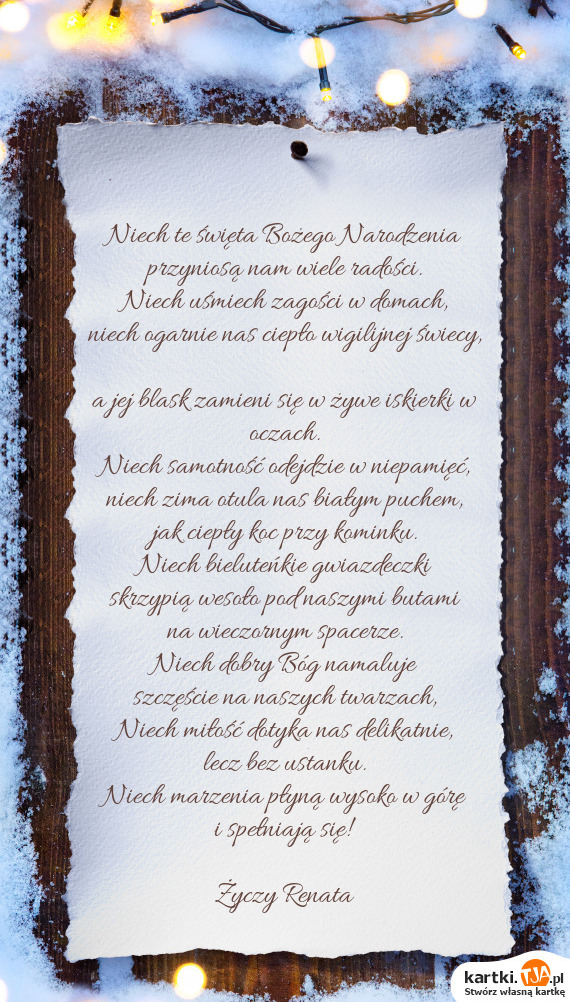 Niech te święta Bożego Narodzenia
przyniosą nam wiele radości.
Niech uśmiech zagości w domach,
niech ogarnie nas ciepło wigilijnej świecy,
a jej blask zamieni się w żywe iskierki w
oczach.
Niech samotność odejdzie w niepamięć,
niech zima otula nas białym puchem,
jak ciepły koc przy kominku.
Niech bieluteńkie gwiazdeczki
skrzypią wesoło pod naszymi butami
na wieczornym spacerze.
Niech dobry Bóg namaluje
szczęście na naszych twarzach,
Niech miłość dotyka nas delikatnie,
lecz bez ustanku.
Niech marzenia płyną wysoko w górę
i spełniają się!
Życzy Renata
kartki.TJA.pl
Stwórz własną kartkę